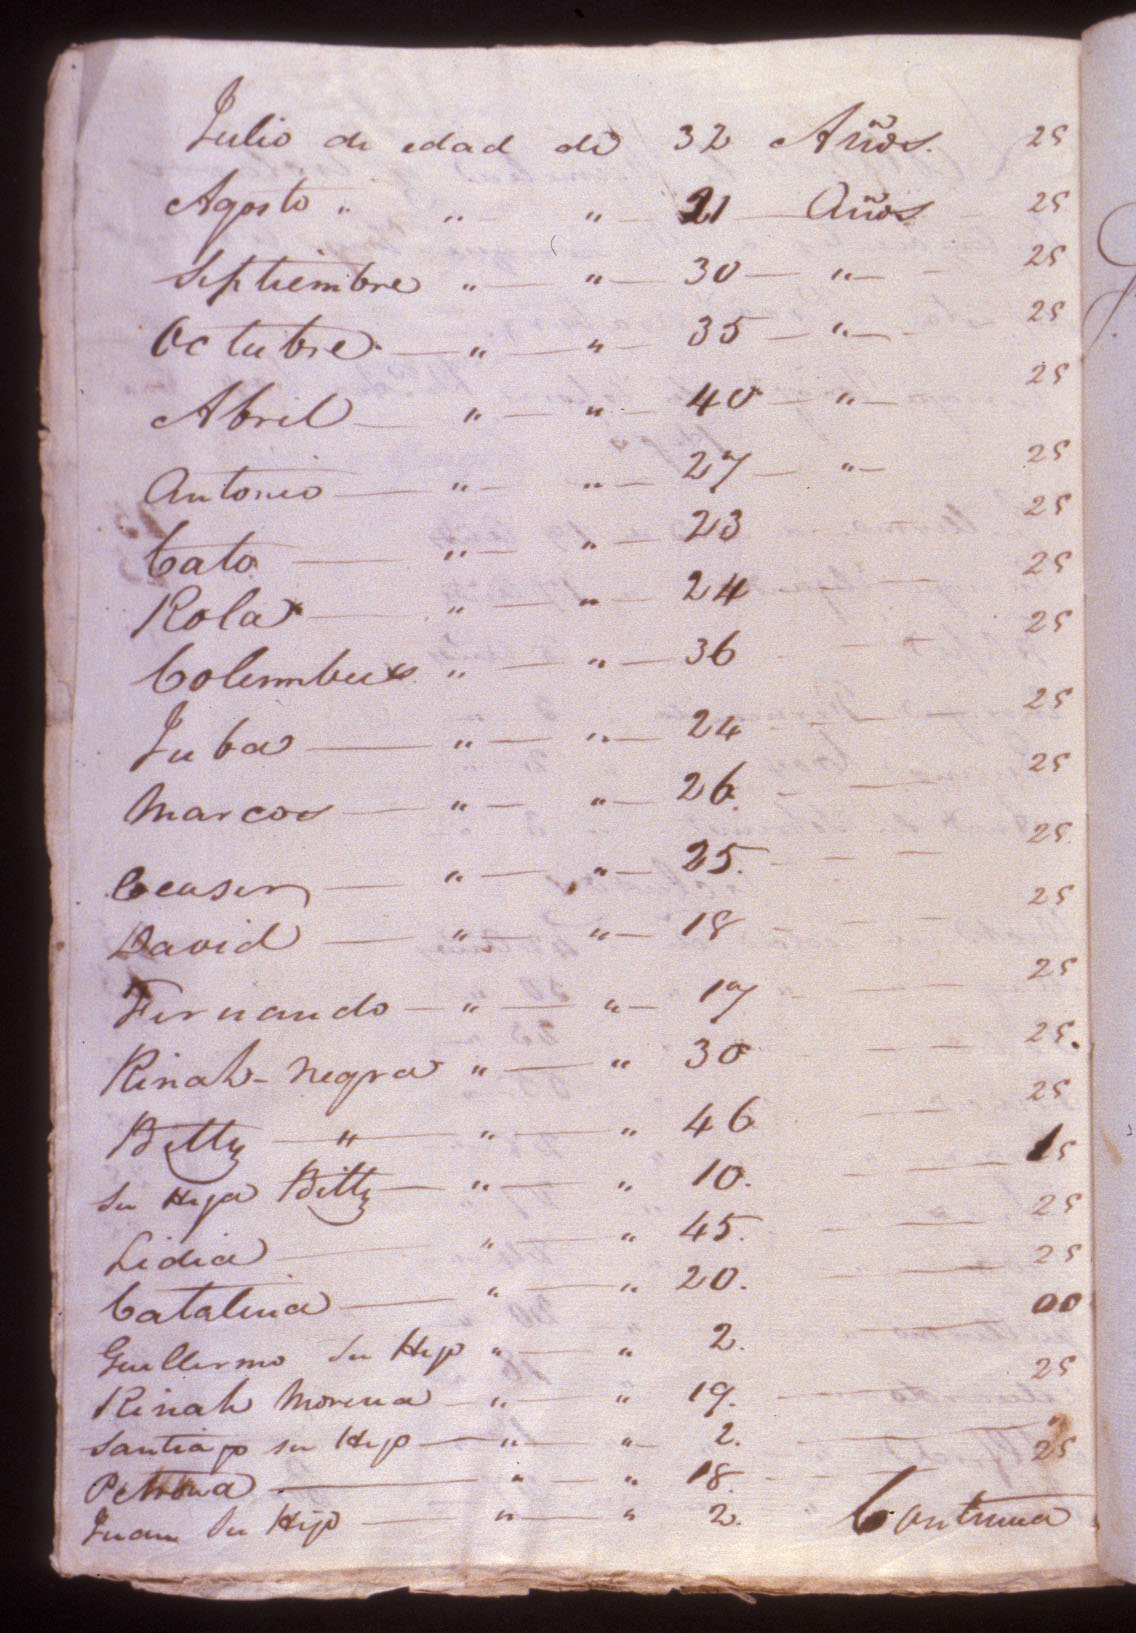 Julio de edad de 32 Años. 25
Agosto " " " 21 Años 25
Septiembre " " 30 " 25
Octubre " " 35 " 25
Abril " " 40 " 25
Antonio " " 27 " 25
Cato " " 23 25
Kola " " 24 25
Colummbus " " 36 25
Juba " " 24 25
Marcos " " 26. 25
Ceaser " " 25. 25
David " " 18 25
Fernando " " 17 25
Kinah-negra " " 30 25.
Bitty " " " 46 25
Su Hija Bitty " " 10. 15
Lidia " " 45. 25
Catalina " " 20. 25
Guillermo Su Hijo " " 2. 00
Kinah Morena " " 19. 25
Santiago su Hijo " " 2. "
Petrona " " 18. 25
Juan Su Hijo " " 2. Continua